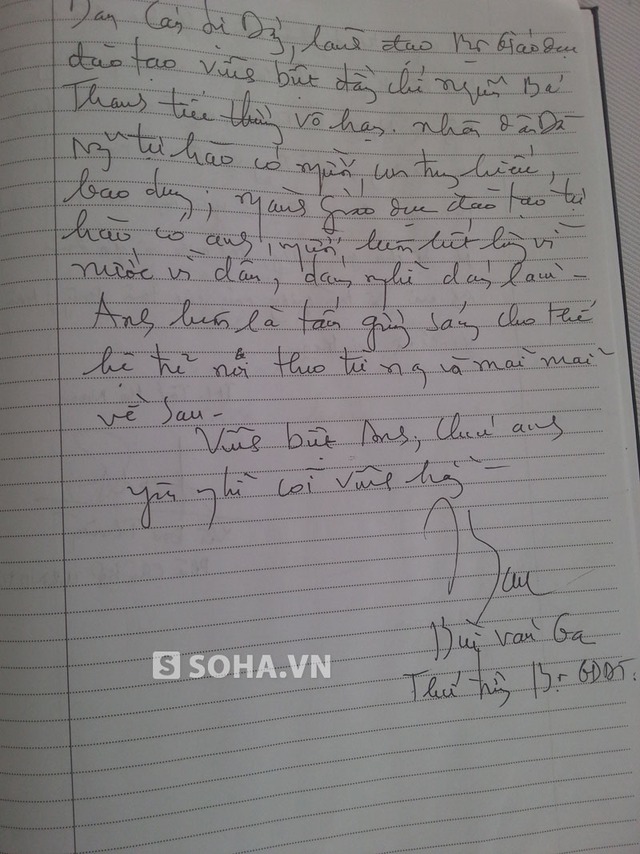 Ban Cán sự Đảng, Lãnh đạo Bộ Giáo dục
đào tạo vĩnh biệt đồng chí Nguyễn Bá
Thanh tiếc thương vô hạn. nhân dân Đà
Nẵng tự hào có người con trung hiếu,
bao dung; ngành giáo dục đào tạo tự
hào có anh, người luôn hết lòng vì
nước vì dân, dám nghĩ dám làm -
Anh luôn là tấm gương sáng cho thế
hệ trẻ noi theo và mãi mãi
về sau -
Vĩnh biệt Anh, chúc anh
yên nghỉ cõi vĩnh hằng -
Bùi Văn Ga
Thứ trưởng Bộ GDĐT.
SOHA.VN